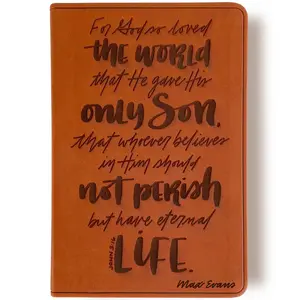 For God so loved
THE WORLD
that He gave His
only Son,
that whoever believes
in Him should
not perish
but have eternal
JOHN 3:16
LIFE.
Max Evans